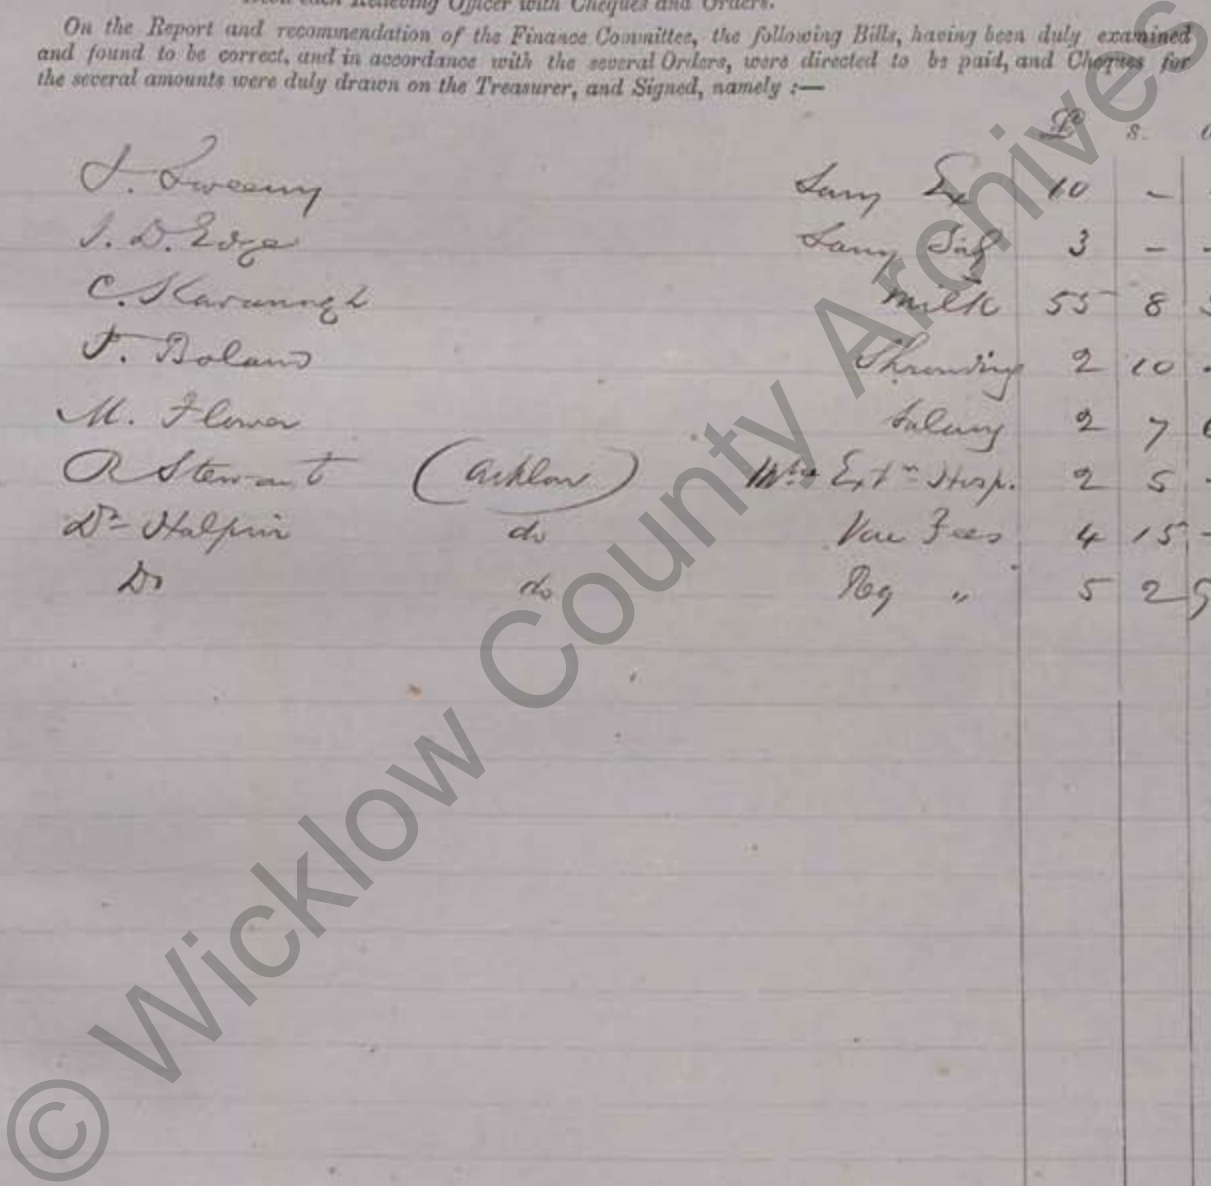 each Relieving Officer with Cheques and Orders.
On the Report and recommendation of the Finance Committee, the following Bills, having been duly examined
and found to be correct, and in accordance with the several Orders, were directed to be paid, and Cheques for
the several amounts were duly drawn on the Treasurer, and Signed, namely :—
£ s.
J. Sweeny Sany Ex 10 –
J. D. Edge Sany 3 – –
C. Kavanagh Milk 55 8
Boland 2 10 -
M. Flower Salary 2 7
R Stewart (Arklow) Ext^n Hosp. 2 5 -
Dr Halpin do Vac Fees 4 15 -
Do do Reg " 5 2
© Wicklow County Archives